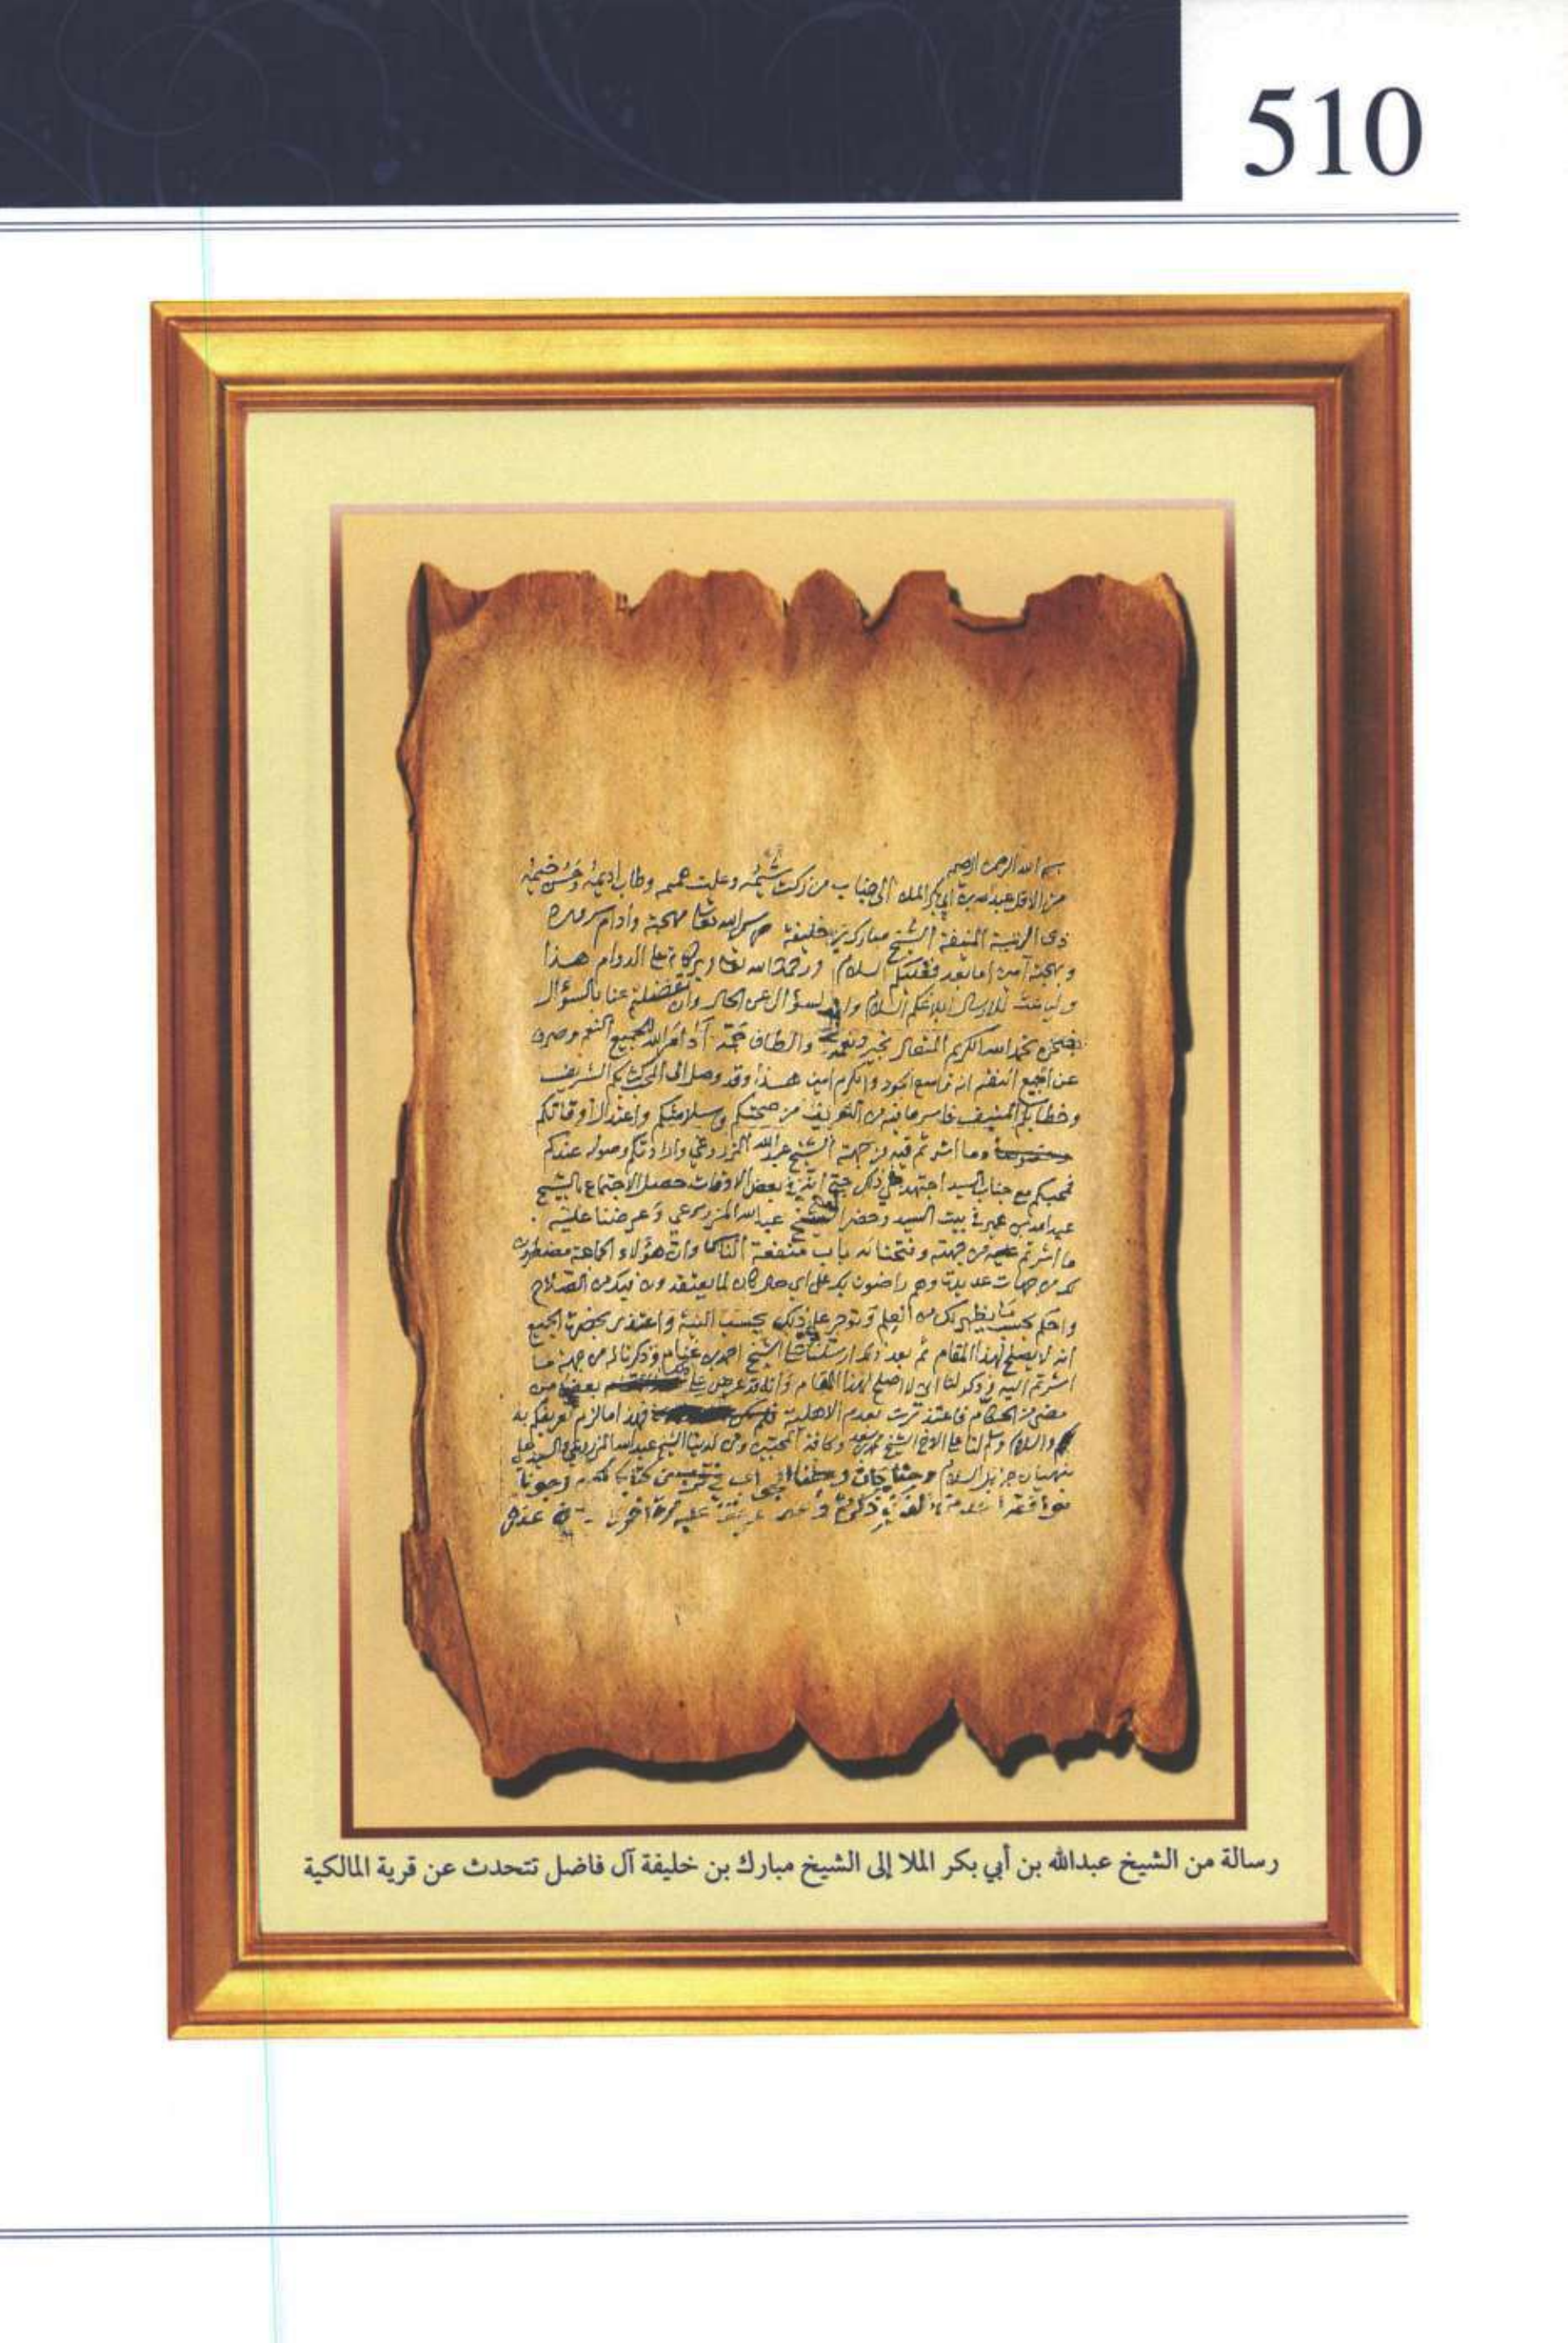 510
بسم الله الرحمن الرحيم
من الاقل عبدالله بن أبي بكر الملا الى جناب من زكت شيمه وعلت هممه وطاب اديمه وحسن خيمه
ذي الرتبة المنيفة الشيخ مبارك بن خليفة حرس الله تعا مهجته وأدام سروره
وبهجته آمين اما بعد فعليكم السلام ورحمة الله تعا وبركاته على الدوام هذا
والباعث للارسال ابلاغكم السلام والسؤال عن الحال وان تفضلتم عنا بالسؤال
فنحن بحمد الله الكريم المتعال بخير ونعمة والطاف جمة أدام الله للجميع النعم وصرف
عن الجميع النقم انه واسع الجود والكرم امين هذا وقد وصل الى المحب كتابكم الشريف
وخطابكم المنيف فاسر ما فيه من التعريف من صحتكم وسلامتكم واعتدال أوقاتكم
وما اشرتم فيه من جهة الشيخ عبدالله المزروعي وارادتكم وصوله عندكم
فمحبكم مع جناب السيد اجتهد في ذلك حتى انه في بعض الاوقات حصل الاجتماع بالشيخ
عبدالله بن عمير في بيت السيد وحضر الشيخ عبدالله المزروعي وعرضنا عليه
ما اشرتم من جهته وفتحنا له باب منفعة الناس وان هؤلاء الجماعة مضطرون
لك من جهات عديدة وهم راضون بك على اي حال كان لما يعتقدون فيك من الصلاح
واحكم بحسب ما يظهر لك من العلم وتوجر على ذلك بحسب النية واعتذر بحضرة الجميع
انه لا يصلح لهذا المقام ثم بعد ذلك ارسلنا الشيخ احمد بن غنام وذكرنا له من جهة ما
اشرتم اليه وذكر لنا اني لا اصلح لهذا المقام وانه قد عرض علي بعض من
مضى من الحكام فاعتذرت بعدم الاهلية فهذا ما لزم تعريفكم به
والسلام وسلم لنا على الاخ الشيخ وكافة المحبين ومن لدينا الشيخ عبدالله المزروعي والسيد
جزيل السلام
رسالة من الشيخ عبدالله بن أبي بكر الملا إلى الشيخ مبارك بن خليفة آل فاضل تتحدث عن قرية المالكية